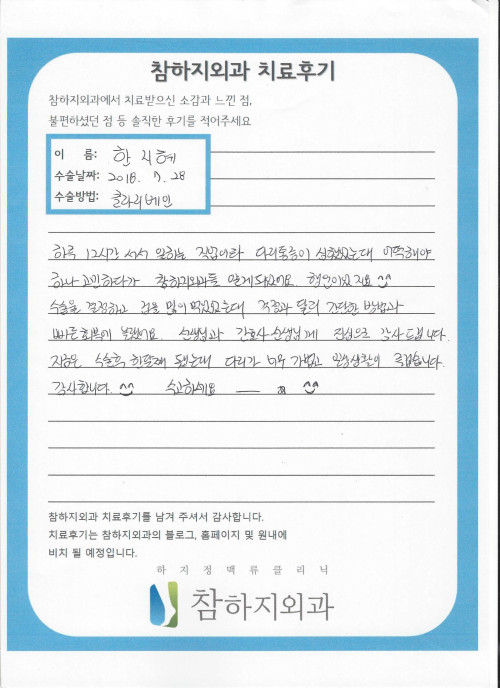 참하지외과 치료후기
참하지외과에서 치료받으신 소감과 느낀 점,
불편하셨던 점 등 솔직한 후기를 적어주세요
이 름: 한지혜
수술날짜: 2018. 7. 28
수술방법: 클라리베인
하루 12시간 서서 일하는 직업이라 다리통증이 심했었는데 어떡해야
하나 고민하다가 참하지외과를 알게되었어요. 행운이었지요 ^^
수술을 결정하고 겁을 많이 먹었었는데 걱정과 달리 간단한 방법과
빠른회복에 놀랬어요. 선생님과 간호사 선생님께 진심으로 감사드립니다.
지금은 수술후 한달째 됐는데 다리가 너무 가볍고 일상생활이 즐겁습니다.
감사합니다. ^^ 수고하세요 ^^
참하지외과 치료후기를 남겨 주셔서 감사합니다.
치료후기는 참하지외과의 블로그, 홈페이지 및 원내에
비치 될 예정입니다.
하지정맥류클리닉
참하지외과